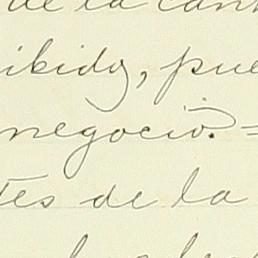 de la can
ibido, pue
negocio. =
tes de la